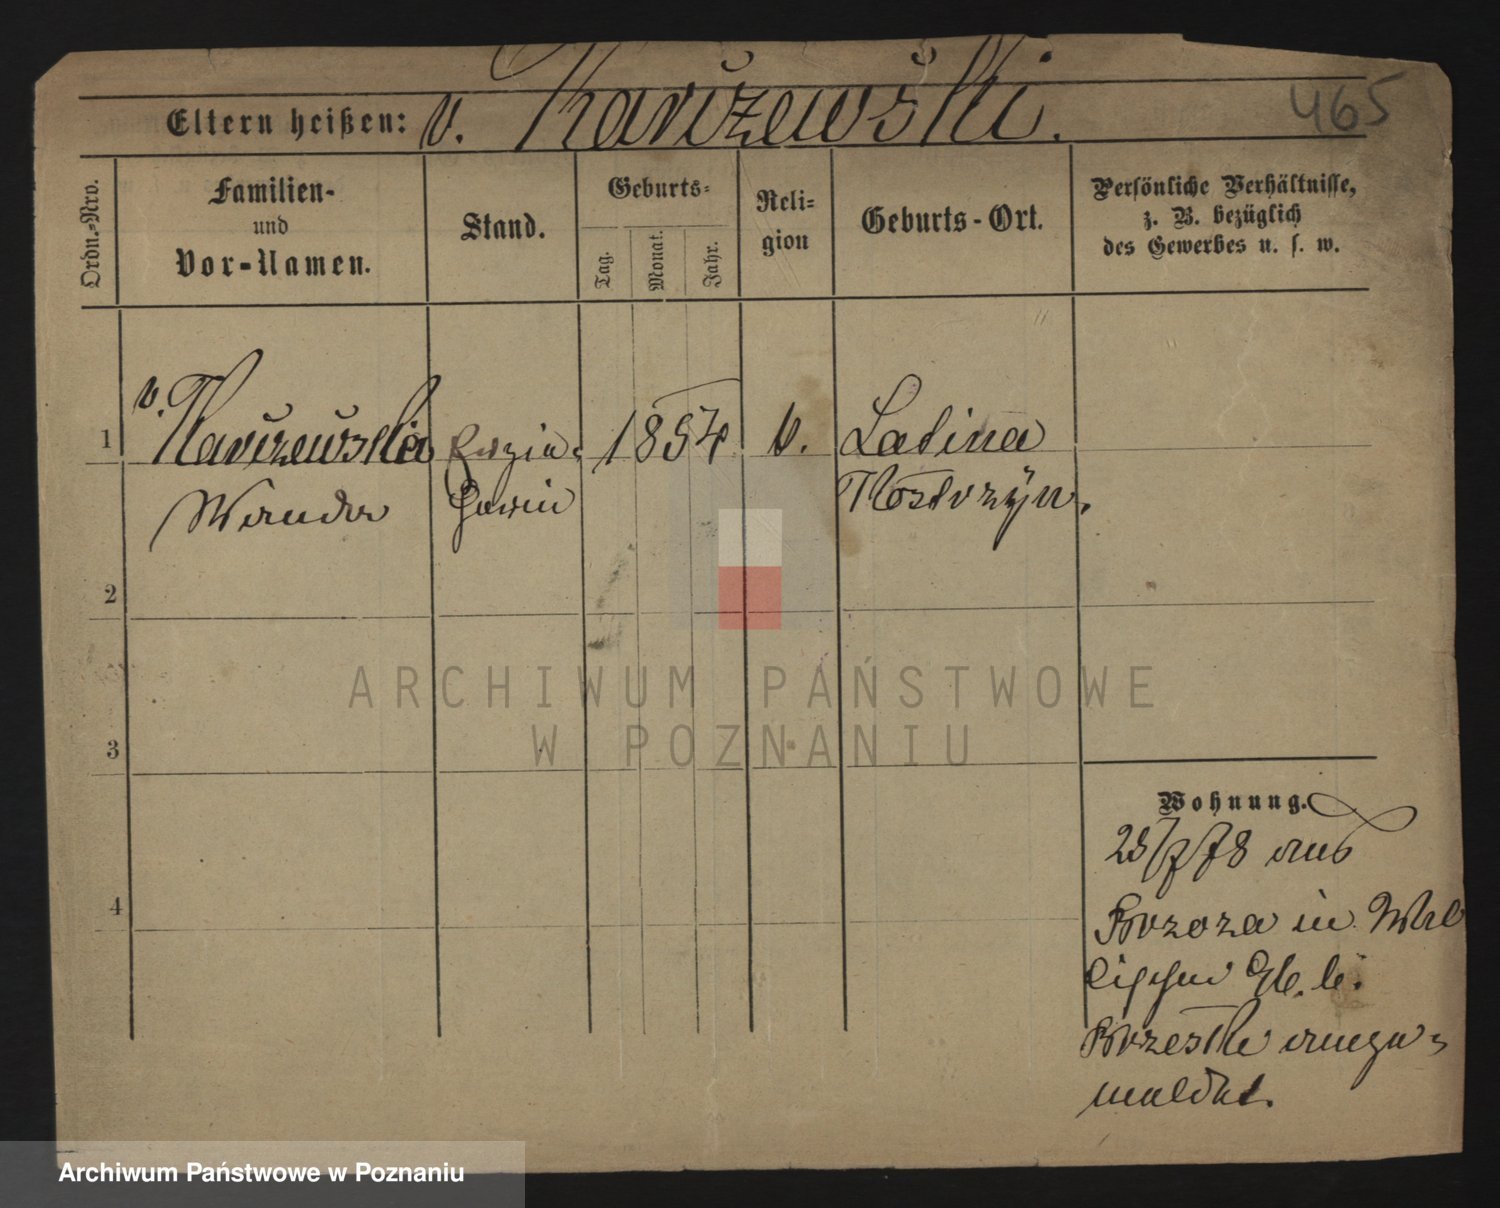 465
Eltern heißen: v. Karczewski.
Ordn.-Nro.
Familien-
und
Vor-Namen.
Stand.
Geburts-
Tag.
Monat.
Jahr.
Reli-
gion
Geburts-Ort.
Persönliche Verhältnisse,
z. B. bezüglich
des Gewerbes u. s. w.
1
v.
Karczewska
Wanda
Erzie-
herin
1854
k.
Kostrzyn.
2
3
4
Wohnung.
28/7 78 aus
Brzoza in
bei
ange-
meldet.
ARCHIWUM PAŃSTWOWE
W POZNANIU
Archiwum Państwowe w Poznaniu